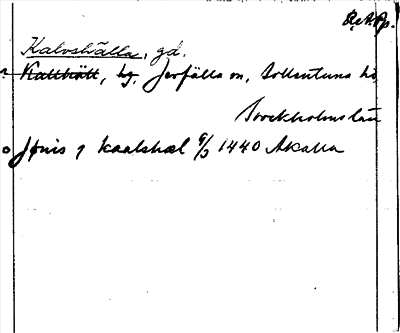 Kalvshälla, gd.
Kallhäll, by, Jerfälla sn, Sollentuna hd
Stockholms län
Jønis j kaalshæl 9/3 1440 Akalla